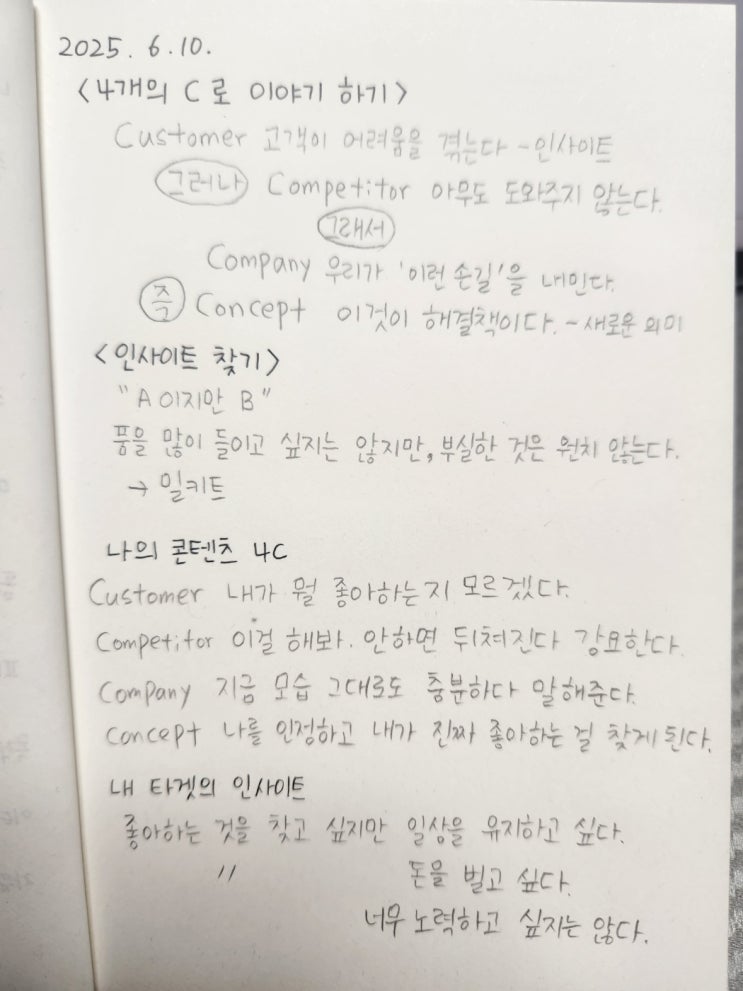 2025. 6.10.
<4개의 C로 이야기 하기>
Customer 고객이 어려움을 겪는다 - 인사이트
그러나 Competitor 아무도 도와주지 않는다.
그래서
Company 우리가 '이런 손길'을 내민다.
즉 Concept 이것이 해결책이다. - 새로운 의미
<인사이트 찾기>
"A 이지만 B"
품을 많이 들이고 싶지는 않지만, 부실한 것은 원치 않는다.
→ 밀키트
나의 콘텐츠 4C
Customer 내가 뭘 좋아하는지 모르겠다.
Competitor 이걸 해봐. 안하면 뒤쳐진다 강요한다.
Company 지금 모습 그대로도 충분하다 말해준다.
Concept 나를 인정하고 내가 진짜 좋아하는 걸 찾게 된다.
내 타겟의 인사이트
좋아하는 것을 찾고 싶지만 일상을 유지하고 싶다.
〃 돈을 벌고 싶다.
너무 노력하고 싶지는 않다.